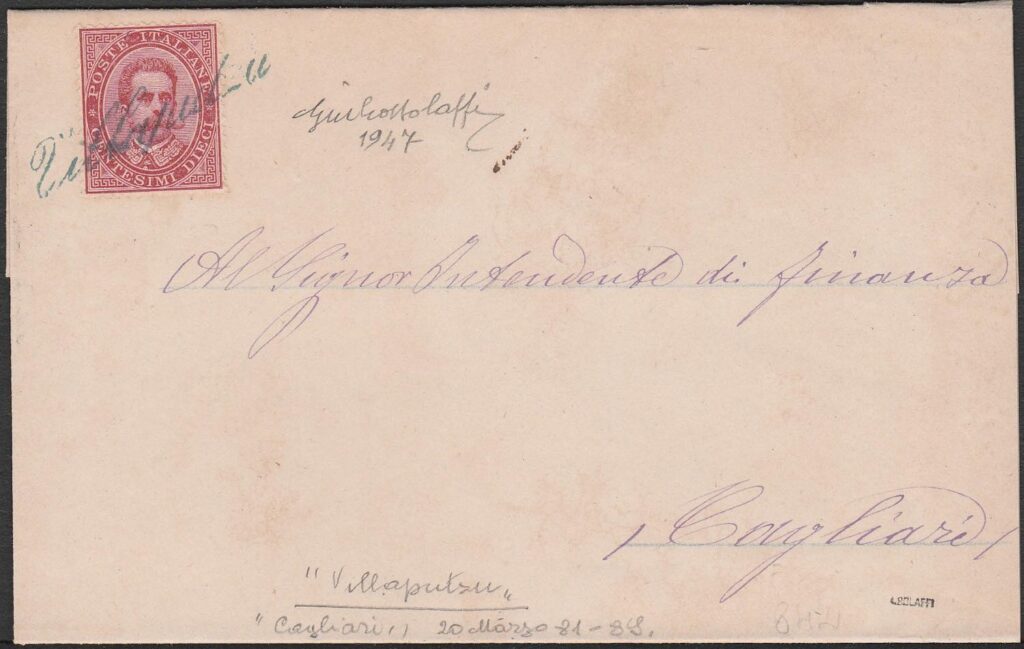 POSTE ITALIANE
CENTESIMI DIECI
Villaputzu
Giulio Bolaffi
1947
Al Signor Intendente di Finanza
Cagliari
"Villaputzu"
"Cagliari" 20 Marzo 81 -
G.BOLAFFI